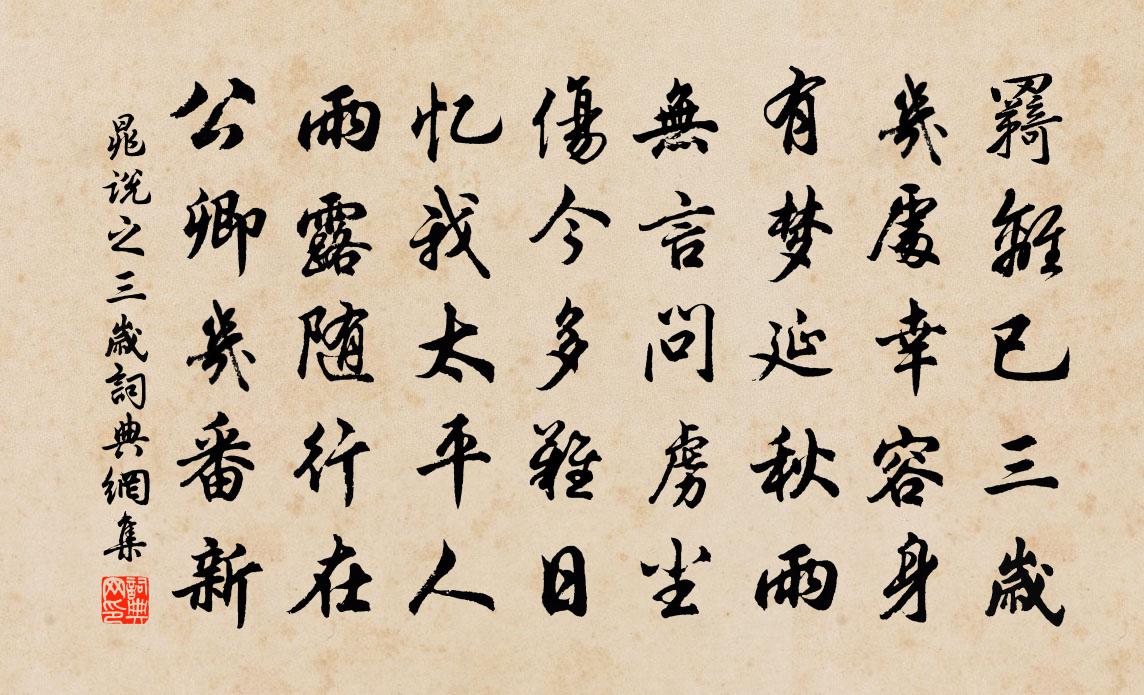 羇離已三歲
幾處幸容身
有梦延秋雨
無言問虜尘
傷今多難日
忆我太平人
雨露随行在
公卿幾番新
晁说之三歲詞典網集
詞典网印